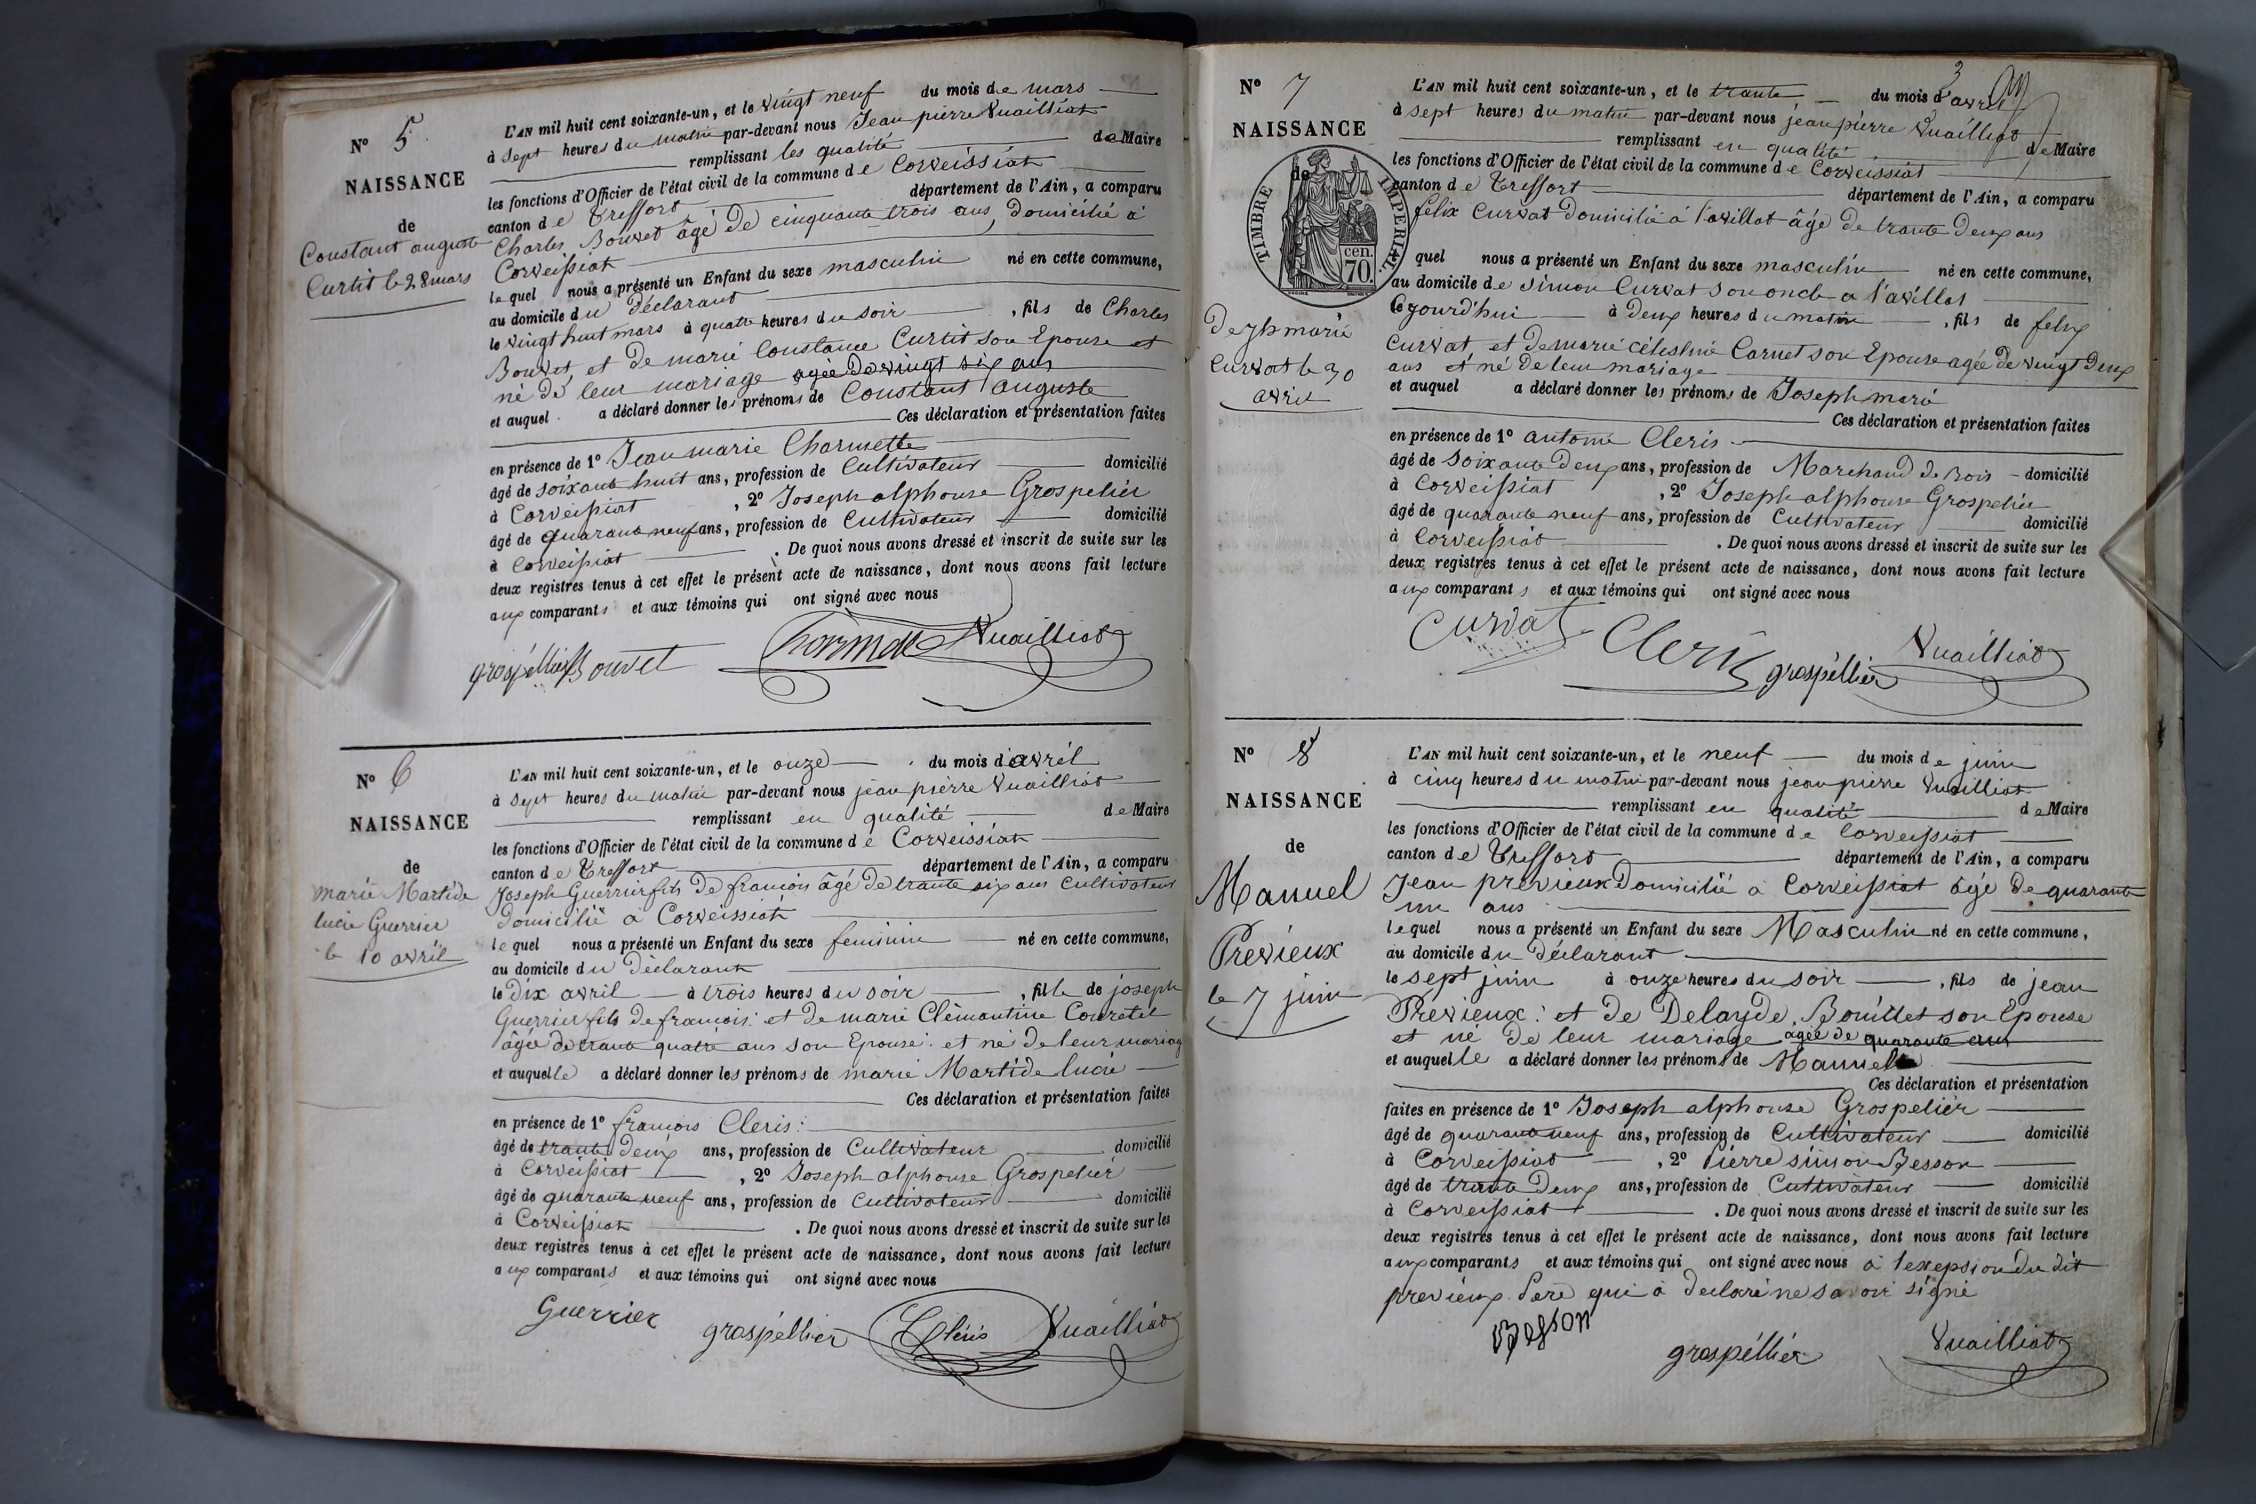 N° 5
NAISSANCE
de
Constant auguste
Curtit le 28 mars
L'AN mil huit cent soixante-un, et le vingt neuf du mois de mars
à sept heures du matin par-devant nous Jean pierre Vuailliat
remplissant les qualité de Maire
les fonctions d'Officier de l'état civil de la commune de Corveissiat
canton de Treffort département de l'Ain, a comparu
Charles Bouvet âgé De cinquante trois ans, Domicilié à
Corveissiat
le quel nous a présenté un Enfant du sexe masculin né en cette commune,
au domicile du Déclarant
le vingt huit mars à quatre heures du soir, fils de Charles
Bouvet, et De marie Constance Curtit son Epouse et
né De leur mariage agée De vingt six ans
et auquel a déclaré donner les prénoms de Constant auguste
Ces déclaration et présentation faites
en présence de 1° Jean marie Charmette
âgé de soixante huit ans, profession de Cultivateur domicilié
à Corveissiat, 2° Joseph alphonse Grospelier
âgé de quarante neuf ans, profession de Cultivateur domicilié
à Corveissiat. De quoi nous avons dressé et inscrit de suite sur les
deux registres tenus à cet effet le présent acte de naissance, dont nous avons fait lecture
aux comparants et aux témoins qui ont signé avec nous
grospéllier Bouvet Vuailliat
N° 6
NAISSANCE
de
marie Martide
lucie Guerrier
le 10 avril
L'AN mil huit cent soixante-un, et le onze du mois d'avril
à sept heures du matin par-devant nous jean pierre Vuailliat
remplissant en qualité de Maire
les fonctions d'Officier de l'état civil de la commune de Corveissiat
canton de Treffort département de l'Ain, a comparu
Joseph Guerrier fils De francois âgé De trante six ans Cultivateur
Domicilié à Corveissiat
le quel nous a présenté un Enfant du sexe feminin né en cette commune,
au domicile du Déclarant
le Dix avril à trois heures du soir, fille de joseph
Guerrier fils De francois et De marie Clèmantine Couretet
agée De trante quatre ans son Epouse et né De leur mariag
et auquelle a déclaré donner les prénoms de marie Martide lucie
Ces déclaration et présentation faites
en présence de 1° francois Cleris
âgé de trante Deux ans, profession de Cultivateur domicilié
à Corveissiat, 2° Joseph alphonse Grospelier
âgé de quarante neuf ans, profession de Cultivateur domicilié
à Corveissiat. De quoi nous avons dressé et inscrit de suite sur les
deux registres tenus à cet effet le présent acte de naissance, dont nous avons fait lecture
aux comparants et aux témoins qui ont signé avec nous
Guerrier grospéllier Cléris Vuailliat
3
N° 7
NAISSANCE
de
TIMBRE IMPERIAL
70 cen.
Joseph marie
Curvat le 30
avril
L'AN mil huit cent soixante-un, et le trante du mois d'avril
à sept heures du matin par-devant nous jean pierre Vuailliat
remplissant en qualité de Maire
les fonctions d'Officier de l'état civil de la commune de Corveissiat
canton de Treffort département de l'Ain, a comparu
felix Curvat Domicilié à l'avillat âgé De trante Deux ans
quel nous a présenté un Enfant du sexe masculin né en cette commune,
au domicile de simon Curvat son oncle a l'avillat
Cejourd'hui à Deux heures du matin, fils de felix
Curvat et De marie célestine Carnet son Epouse agée De vingt Deux
ans et né De leur mariage
et auquel a déclaré donner les prénoms de Joseph marie
Ces déclaration et présentation faites
en présence de 1° antoine Cleris
âgé de soixante Deux ans, profession de Marchand de Bois domicilié
à Corveissiat, 2° Joseph alphonse Grospelier
âgé de quarante neuf ans, profession de Cultivateur domicilié
à Corveissiat. De quoi nous avons dressé et inscrit de suite sur les
deux registres tenus à cet effet le présent acte de naissance, dont nous avons fait lecture
aux comparants et aux témoins qui ont signé avec nous
Curvat Cleris grospéllier Vuailliat
N° 8
NAISSANCE
de
Manuel
Previeux
le 7 juin
L'AN mil huit cent soixante-un, et le neuf du mois de juin
à cinq heures du matin par-devant nous jean pierre Vuailliat
remplissant en qualité de Maire
les fonctions d'Officier de l'état civil de la commune de Corveissiat
canton de Treffort département de l'Ain, a comparu
Jean previeux Domicilié a Corveissiat âgé De quarante
un ans
le quel nous a présenté un Enfant du sexe Masculin né en cette commune,
au domicile du Déclarant
le sept juin à onze heures du soir, fils de jean
Previeux et de Delayde Bouillet son Epouse
et né De leur mariage agée de quarante ans
et auquelle a déclaré donner les prénoms de Manuel
Ces déclaration et présentation
faites en présence de 1° Joseph alphonse Grospelier
âgé de quarante neuf ans, profession de Cultivateur domicilié
à Corveissiat, 2° Pierre simon Besson
âgé de trante Deux ans, profession de Cultivateur domicilié
à Corveissiat. De quoi nous avons dressé et inscrit de suite sur les
deux registres tenus à cet effet le présent acte de naissance, dont nous avons fait lecture
aux comparants et aux témoins qui ont signé avec nous à l'exepsion du dit
previeux Pere qui à Declaré ne savoir signé
Besson grospéllier Vuailliat